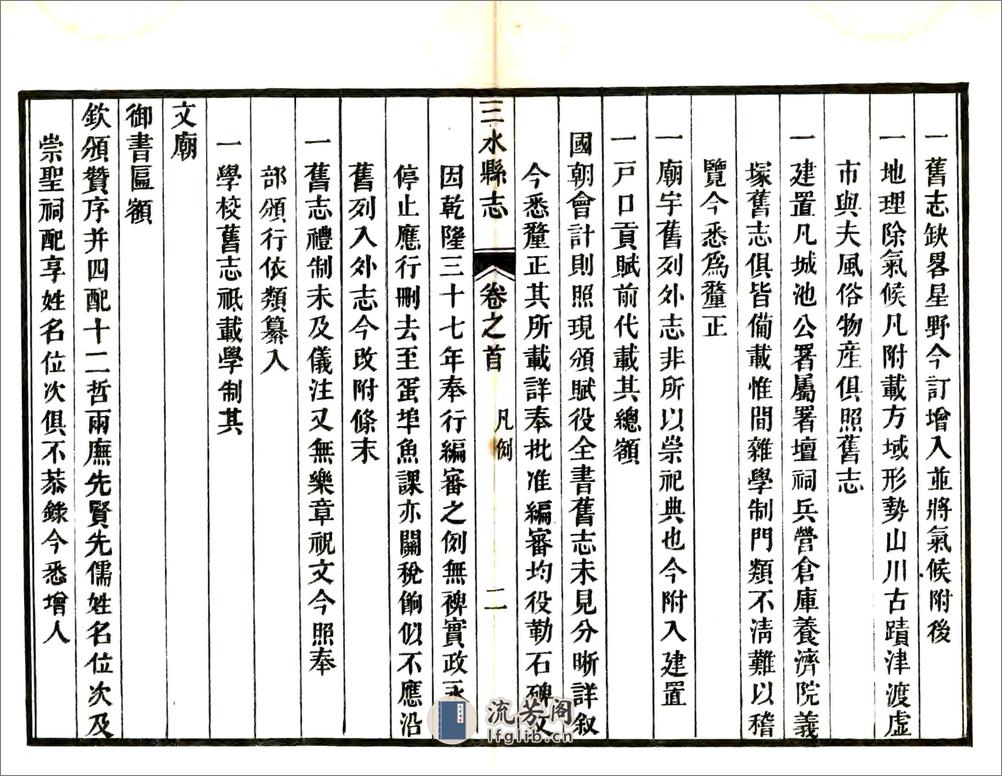 一舊志缺畧星野今訂增入並將氣候附後
一地理除氣候凡附載方域形勢山川古蹟津渡虛
市與夫風俗物產俱照舊志
一建置凡城池公署屬署壇祠兵營倉庫養濟院義
塚舊志俱皆備載惟間雜學制門類不淸難以稽
覽今悉爲釐正
一廟宇舊列外志非所以崇祀典也今附入建置
一戸口貢賦前代載其總額
國朝會計則照現頒賦役全書舊志未見分晰詳叙
今悉釐正其所載詳奉批准編審均役勒石碑文
三水縣志 卷之首 凡例 二
因乾隆三十七年奉行編審之例無裨實政永
停止應行刪去至蛋埠魚課亦關稅餉似不應沿
舊列入外志今改附條末
一舊志禮制未及儀注又無樂章祝文今照奉
部頒行依類纂入
一學校舊志祇載學制其
文廟
御書匾額
欽頒贊序并四配十二哲兩廡先賢先儒姓名位次及
崇聖祠配享姓名位次俱不恭錄今悉增入
流芳阁
lfglib.cn